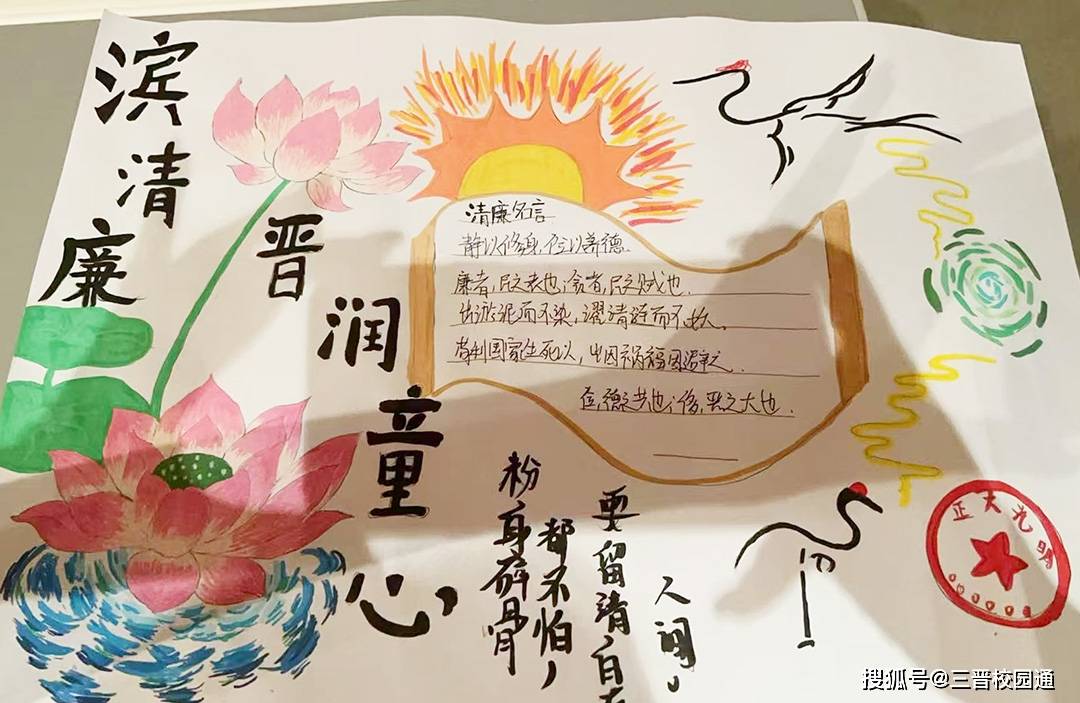 滨清廉
晋润童心
清廉名言
静以修身,俭以养德.
廉者,民之表也,贪者,民之贼也.
出淤泥而不染,濯清涟而不妖.
苟利国家生死以,岂因祸福
俭,德之共也,侈,恶之大也.
粉身碎骨
都不怕,
要留清白在
人间。
正大光明
搜狐号@三晋校园通